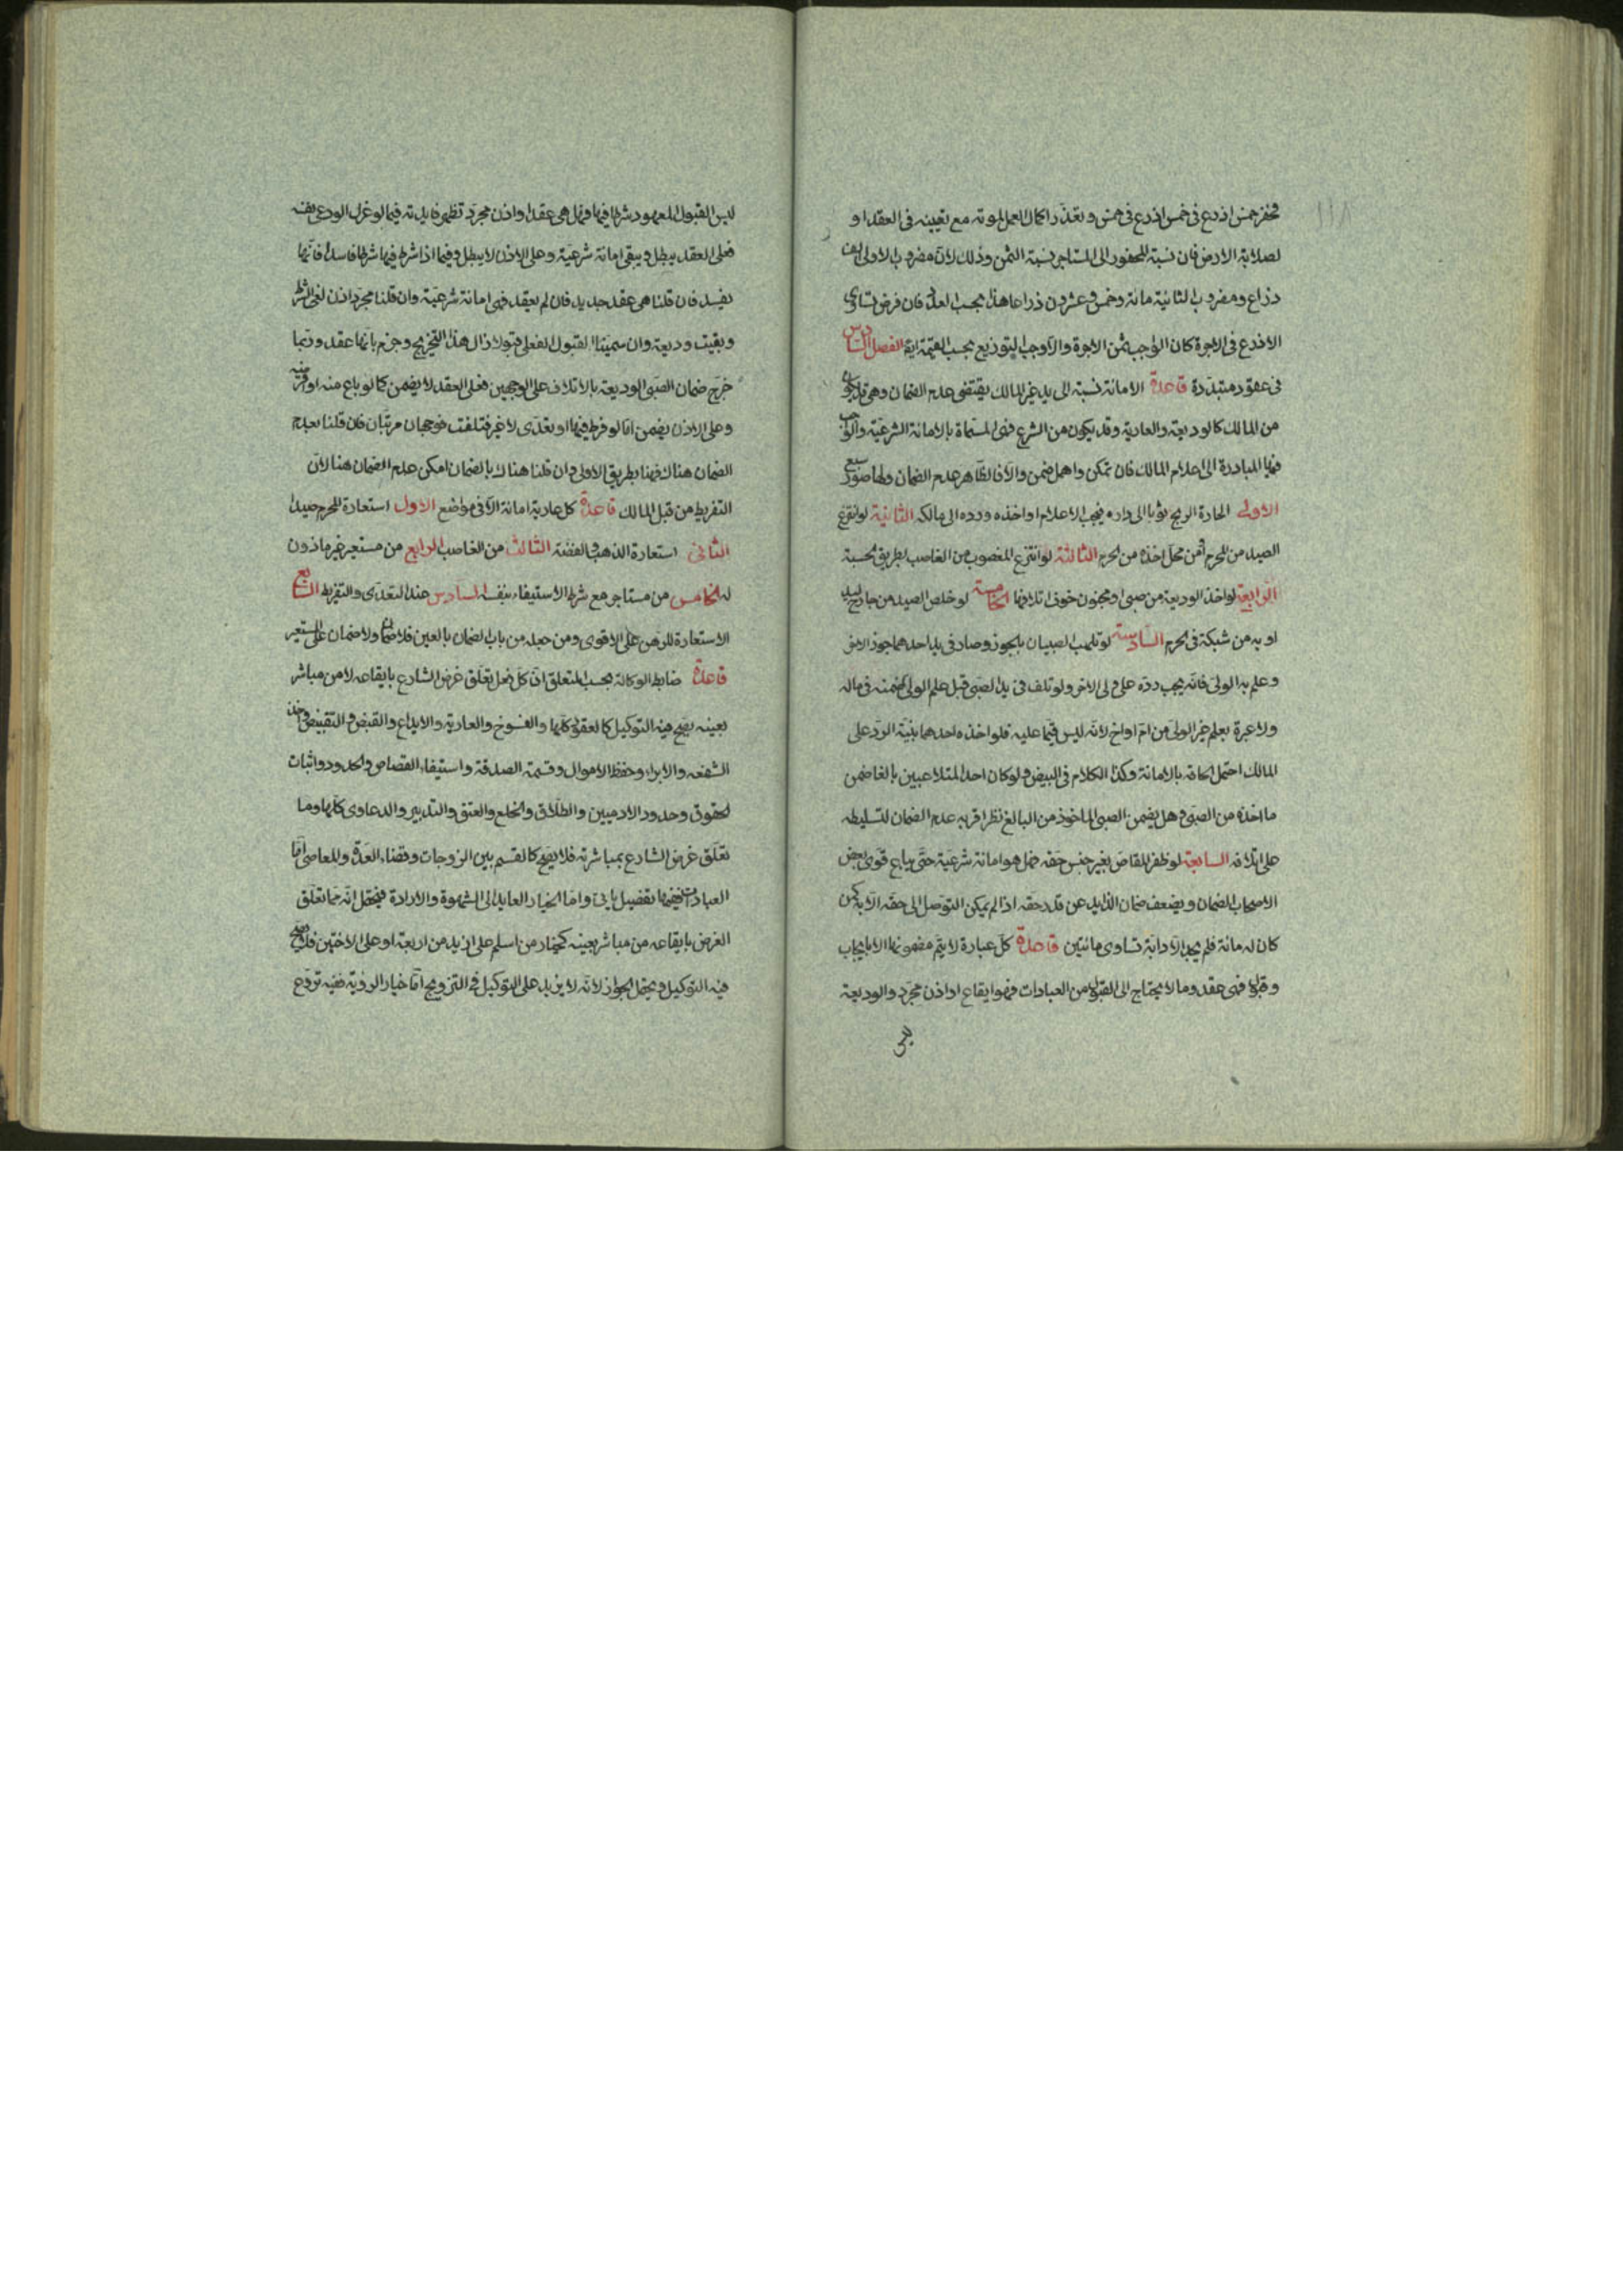 ١١٨
فحفر خمس اذرع فى خمس اذرع فى خمس وتعذّر اكمال العمل لموته مع تعيينه فى العقد او
لصلابة الارض فان نسبة المحفور الى المستاجر نسبة الثمن وذلك لانّ مضروب الاولى الف
ذراع ومضروب الثانية مائة وخمس وعشرون ذراعا هذا بحسب العدل فان فرض تساوى
الاذرع فى الاجرة كان الواجب ثمن الاجرة والّا وجب التوزيع بحسب القيمة ايضا الفصل السادس
فى عقود متبدّدة قاعدة الامانة نسبة الى يد غير المالك يقتضى عدم الضمان وهى قد يكون
من المالك كالوديعة والعارية وقد يكون من الشرع فهى المسمّاة بالامانة الشرعيّة والواجب
فيها المبادرة الى اعلام المالك فان تمكن واهمل ضمن والّا فالظاهر عدم الضمان ولها صور سبع
الاولى اطارة الريح ثوبا الى داره فيجب الاعلام او اخذه ورده الى مالكه الثانية لو انتزع
الصيد من المحرم او من محلّ اخذه من الحرم الثالثة لو انتزع المغصوب من الغاصب بطريق الحسبة
الرابعة لو اخذ الوديعة من صبى او مجنون خوف اتلافها الخامسة لو خلص الصيد من جارح ليداويه
او به من شبكة فى الحرم السادسة لو تلعب الصبيان بالجوز وصار فى يد احدهما جوز الاخر
وعلم به الولىّ فانّه يجب ردّه على ولى الاخر ولو تلف فى يد الصبى قبل علم الولى ضمنه فى ماله
ولا عبرة بعلم غير الولىّ من ام او اخ لانّه ليس قيما عليه فلو اخذه احدهما بنيّة الردّ على
المالك احتمل الحاقه بالامانة وكذا الكلام فى البيض ولو كان احد المتلاعبين بالغا ضمن
ما اخذه من الصبى وهل يضمن الصبى الماخوذ من البالغ نظر اقربه عدم الضمان لتسليطه
على اتلافه السابعة لو ظفر المقاصّ بغير جنس حقّه فهل هو امانة شرعيّة حتّى يباع قوّى بعض
الاصحاب الضمان ويضعف ضمان الزايد عن قدر حقه اذا لم يمكن التوصّل الى حقّه الّا به كمن
كان له مائة فلم يجد الّا دابّة تساوى مائتين قاعدة كلّ عبارة لا يتم مضمونها الا بايجاب
وقبول فهى عقد وما لا يحتاج الى القبول من العبادات فهو ايقاع او اذن مجرّد والوديعة
ليس
ليس القبول المعهود شرطا فيها فهل هى عقد او اذن مجرّد تظهر فايدته فيما لو عزل الودعى نفسه
فعلى العقد يبطل ويبقى امانة شرعيّة وعلى الاذن لا يبطل وفيما اذا شرط فيها شرطا فاسدا فانّها
يفسد فان قلنا هى عقد جديد فان لم يعقد فهى امانة شرعيّة وان قلنا مجرّد اذن لغى الشرط
وبقيت وديعة وان سمينا القبول الفعلى قبولا زال هذا التخريج وجزم بانّها عقد وربّما
خرّج ضمان الصبى الوديعة بالاتلاف على الوجهين فعلى العقد لا يضمن كما لو باع منه او اقرضه
وعلى الاذن يضمن امّا لو فرط فيها او تعدّى لا غير فتلفت فوجهان مرتّبان فان قلنا بعدم
الضمان هناك فهنا بطريق الاولى وان قلنا هناك بالضمان امكن عدم الضمان هنا لانّ
التفريط من قبل المالك قاعدة كل عارية امانة الّا فى مواضع الاول استعارة المحرم صيدا
الثانى استعارة الذهب والفضّة الثالث من الغاصب الرابع من مستعير غير ماذون
له الخامس من مستاجر مع شرط الاستيفاء بنفسه السادس عند التعدّى والتفريط السابع
الاستعارة للرهن على الاقوى ومن جعله من باب الضمان بالعين فلا ضمان ولا ضمان على المستعير
قاعدة ضابط الوكالة بحسب المتعلق انّ كلّ فعل تعلّق غرض الشارع بايقاعه لا من مباشر
بعينه يصحّ فيه التوكيل كالعقود كلّها والفسوخ والعارية والايداع والقبض والتقبيض واخذ
الشفعه والابراء وحفظ الاموال وقسمة الصدقة واستيفاء القصاص والحدود واثبات
حقوق وحدود الادميين والطلاق والخلع والعتق والتدبير والدعاوى كلّها وما
تعلّق غرض الشارع بمباشرته فلا يصحّ كالقسم بين الزوجات وقضاء العدّة والمعاصى امّا
العبادات ففيها تفصيل ياتى وامّا الخيار العايد الى الشهوة والارادة فيحتمل انّه ممّا تعلّق
الغرض بايقاعه من مباشر بعينه كخيار من اسلم على ازيد من اربعة او على الاختين فلا يصح
فيه التوكيل ويحتمل الجواز لانّه لا يزيد على التوكيل فى التزويج امّا خيار الروية ففيه تروّع